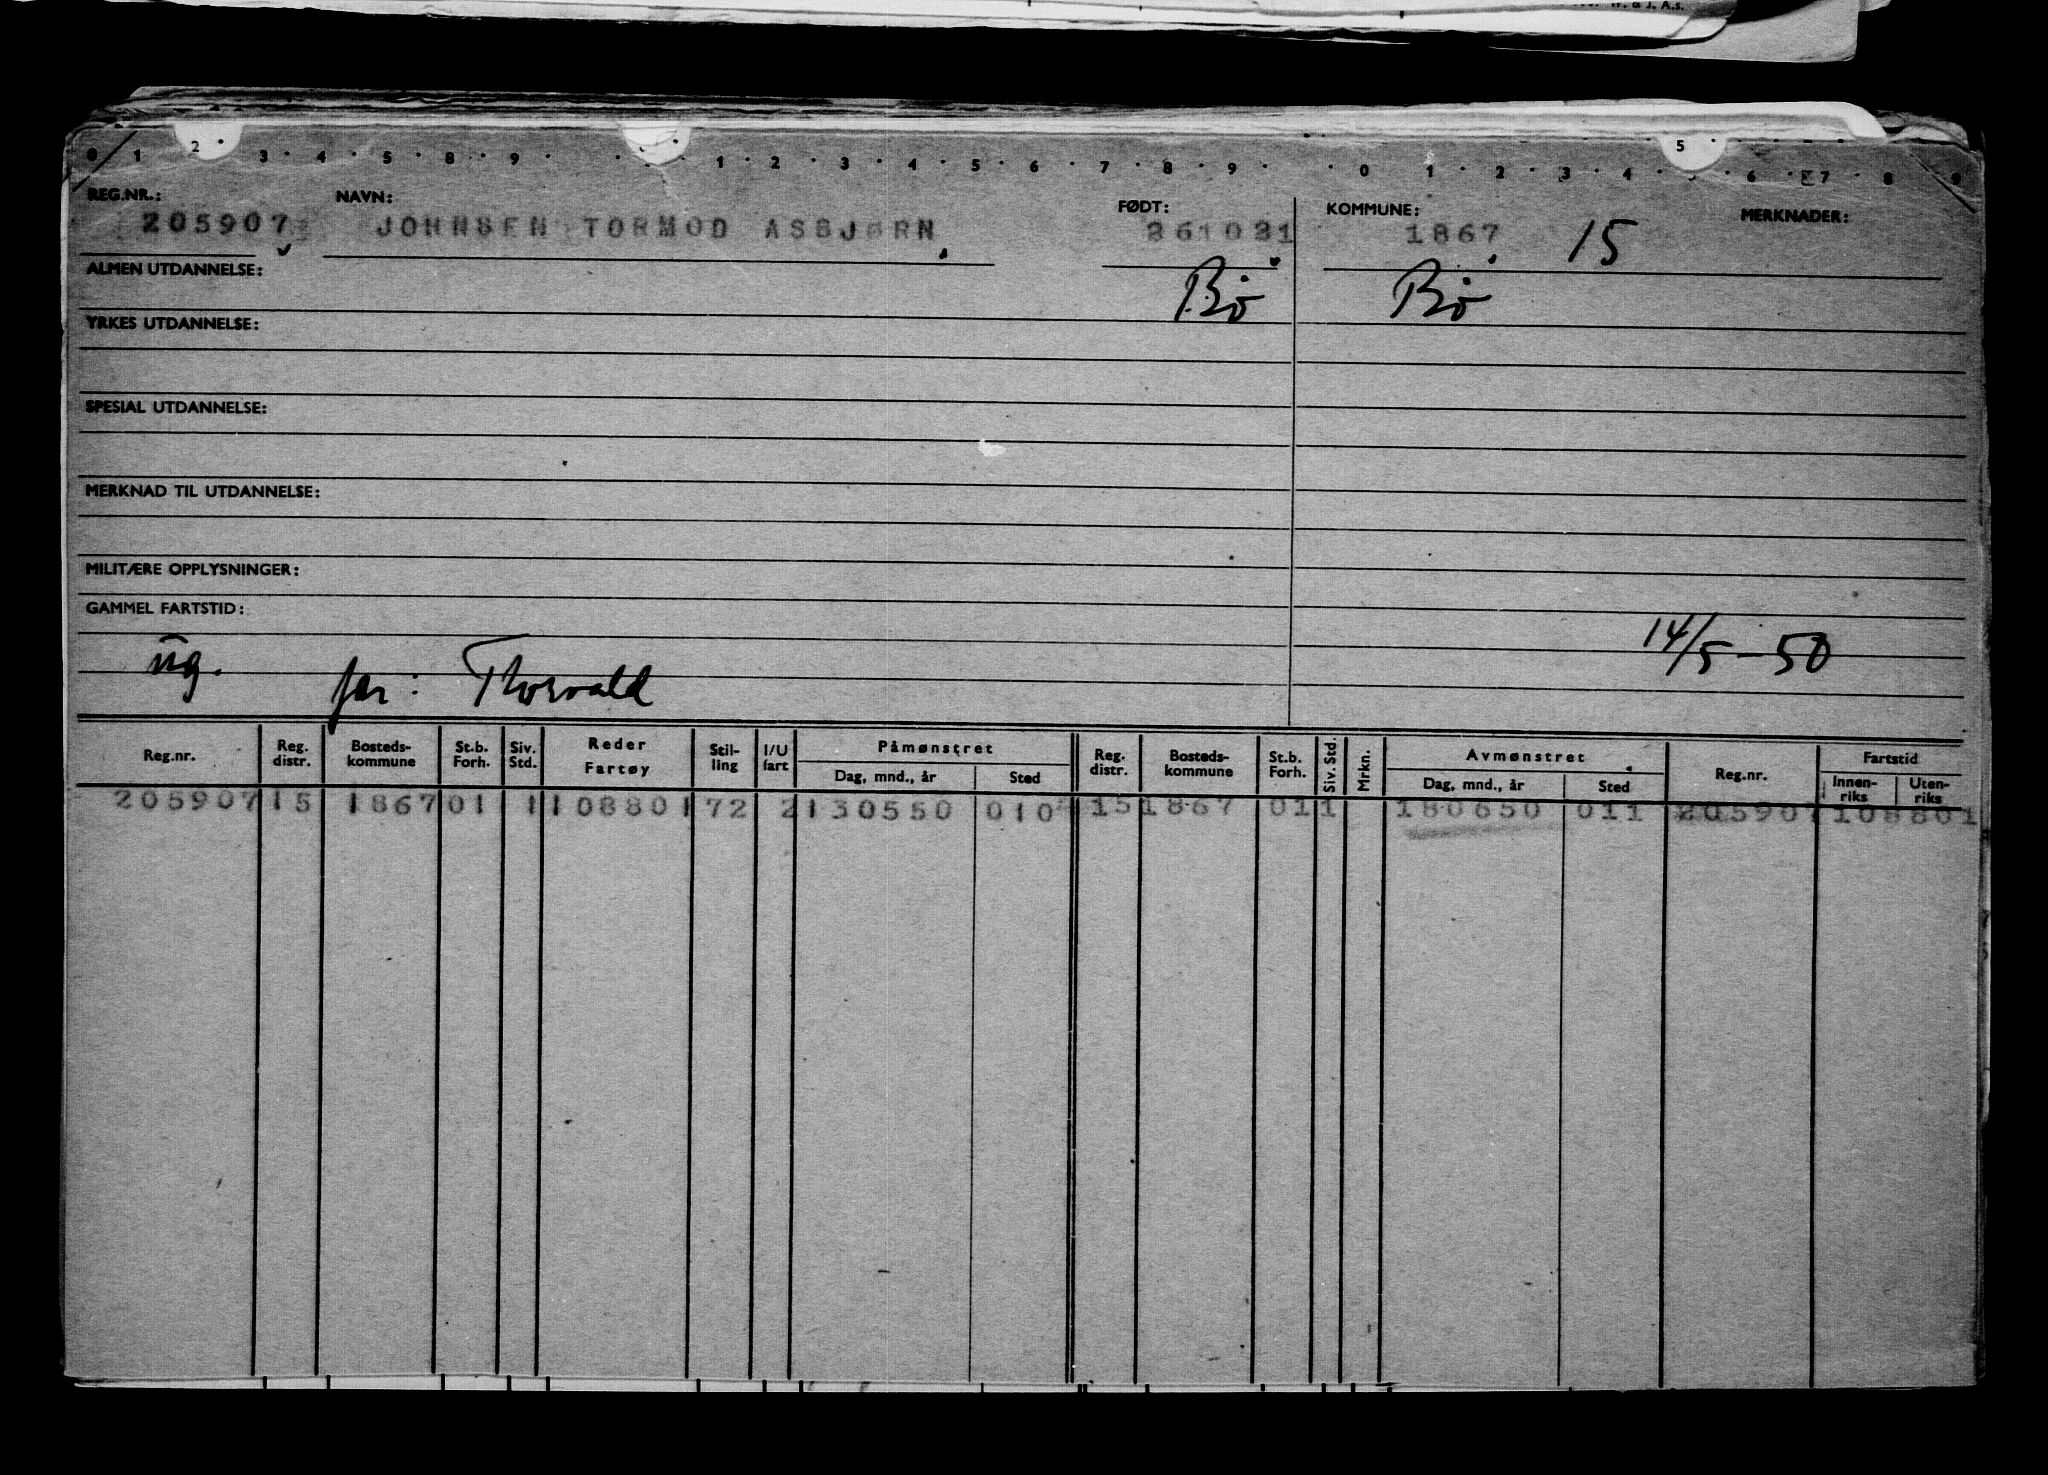 W. & J. A.s.
0 1 2 3 4 5 8 9 1 2 3 4 5 6 7 8 9 0 1 2 3 4 5 6 7 8 9
REG.NR.: NAVN: FØDT: KOMMUNE: MERKNADER:
205907 JOHNSEN TORMOD ASBJØRN 261021 1867 15
ALMEN UTDANNELSE: Bø Bø
YRKES UTDANNELSE:
SPESIAL UTDANNELSE:
MERKNAD TIL UTDANNELSE:
MILITÆRE OPPLYSNINGER:
GAMMEL FARTSTID:
ug. far: Thorvald 14/5-50
Reg.nr. Reg. distr. Bosteds-kommune St.b. Forh. Siv. Std. Reder Fartøy Stil-ling I/U fart Påmønstret Dag, mnd., år Sted Reg. distr. Bosteds-kommune St.b. Forh. Siv. Std. Mrkn. Avmønstret Dag, mnd., år Sted Reg.nr. Fartstid Innen-riks Uten-riks
205907 15 1867 01 1 108801 72 2 130550 010 15 1867 01 1 180650 011 205907 108801